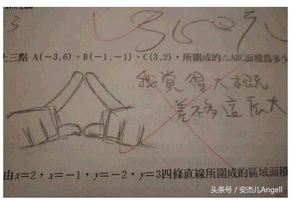 上三點 A(-3,6)、B(-1,-1)、C(3,2)，所圍成的△ABC面積為多少
我覺得大概
差不多這麼大
由x=2，x=-1，y=-2，y=3四條直線所圍成的區域面積
头条号 / 安杰儿Angell